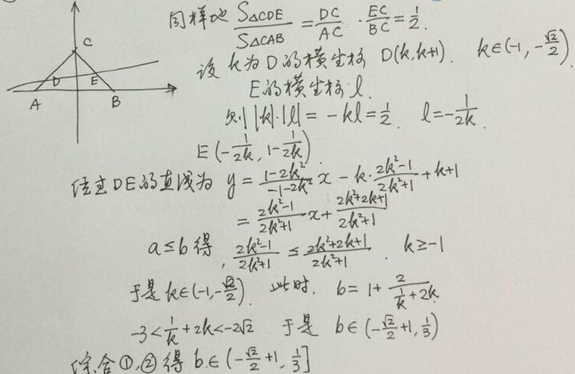 同样地 S△CDE/S△CAB = DC/AC · EC/BC = 1/2.
设 k为D的横坐标 D(k,k+1). k∈(-1, -√2/2)
E的横坐标 l.
则 |k|·|l| = -kl = 1/2. l = -1/2k.
E(-1/2k, 1-1/2k)
C
D
E
A
B
DE的直线为 y = (1-2k²)/(-1-2k²) x - k·(2k²-1)/(2k²+1) + k+1
= (2k²-1)/(2k²+1) x + (2k²+2k+1)/(2k²+1)
a≤b 得, (2k²-1)/(2k²+1) ≤ (2k²+2k+1)/(2k²+1). k≥-1
于是 k∈(-1,-√2/2). 此时, b = 1+ 2/(1/k+2k)
-3<1/k+2k<-2√2 于是 b∈(-√2/2+1, 1/3)
综合①,②得 b∈(-√2/2+1, 1/3]